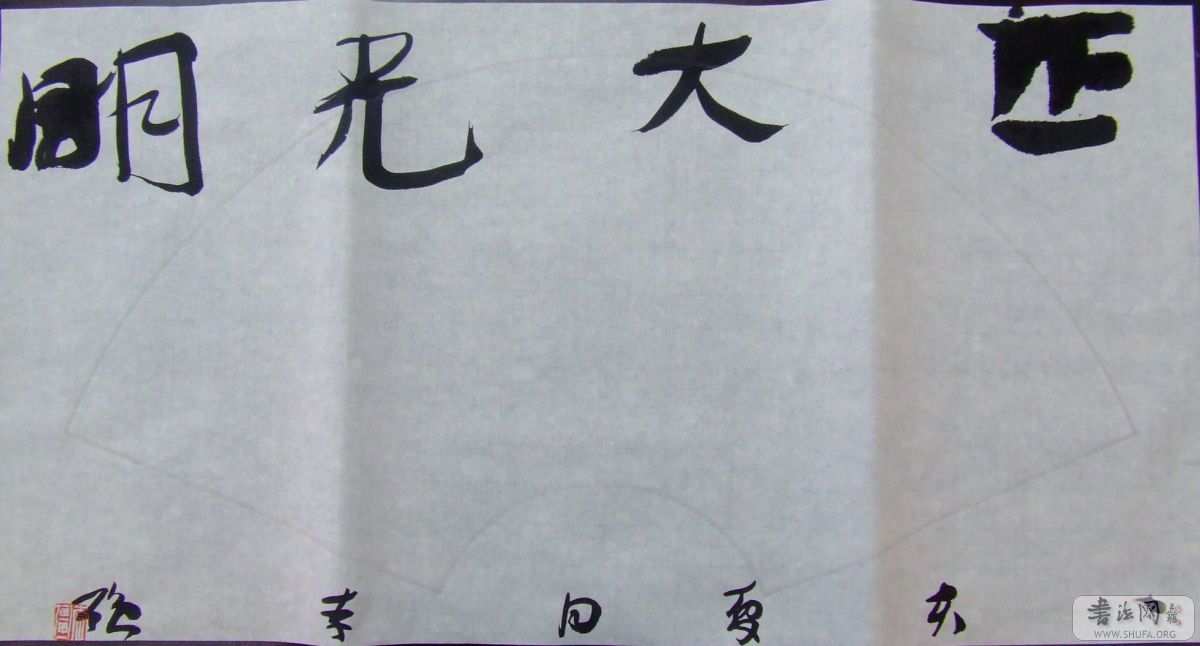 正大光明
亥夏日李强
書法网
WWW.SHUFA.ORG